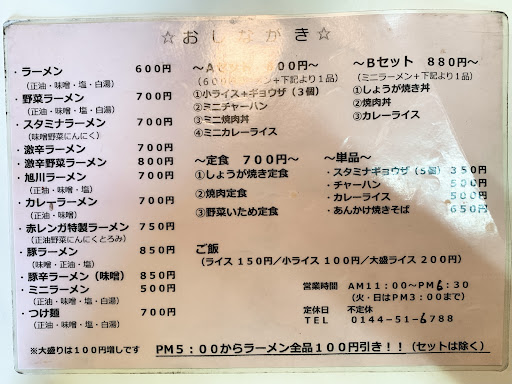 ☆おしながき☆
・ラーメン 600円
(正油・味噌・塩・白湯)
・野菜ラーメン 700円
(正油・味噌・塩・白湯)
・スタミナラーメン 700円
(味噌野菜にんにく)
・激辛ラーメン 700円
・激辛野菜ラーメン 800円
・旭川ラーメン 700円
(正油・味噌・塩)
・カレーラーメン 700円
(正油・味噌)
・赤レンガ特製ラーメン 750円
(正油野菜にんにくとろみ)
・豚ラーメン 850円
(味噌・正油・塩)
・豚辛ラーメン(味噌) 850円
・ミニラーメン 500円
(正油・味噌・塩・白湯)
・つけ麺 700円
(正油・味噌・塩・白湯)
※大盛りは100円増しです
～Aセット 00円～
(600 +下記より1品)
①小ライス+ギョウザ(3個)
②ミニチャーハン
③ミニ焼肉丼
④ミニカレーライス
～Bセット 880円～
(ミニラーメン+下記より1品)
①しょうが焼き丼
②焼肉丼
③カレーライス
～定食 700円～
①しょうが焼き定食
②焼肉定食
③野菜いため定食
～単品～
・スタミナギョウザ(5個) 350円
・チャーハン 500円
・カレーライス 500円
・あんかけ焼きそば 650円
ご飯
(ライス 150円/小ライス 100円/大盛ライス 200円)
営業時間 AM11:00～PM6:30
(火・日はPM3:00まで)
定休日 不定休
TEL 0144-51-6788
PM5:00からラーメン全品100円引き!!(セットは除く)